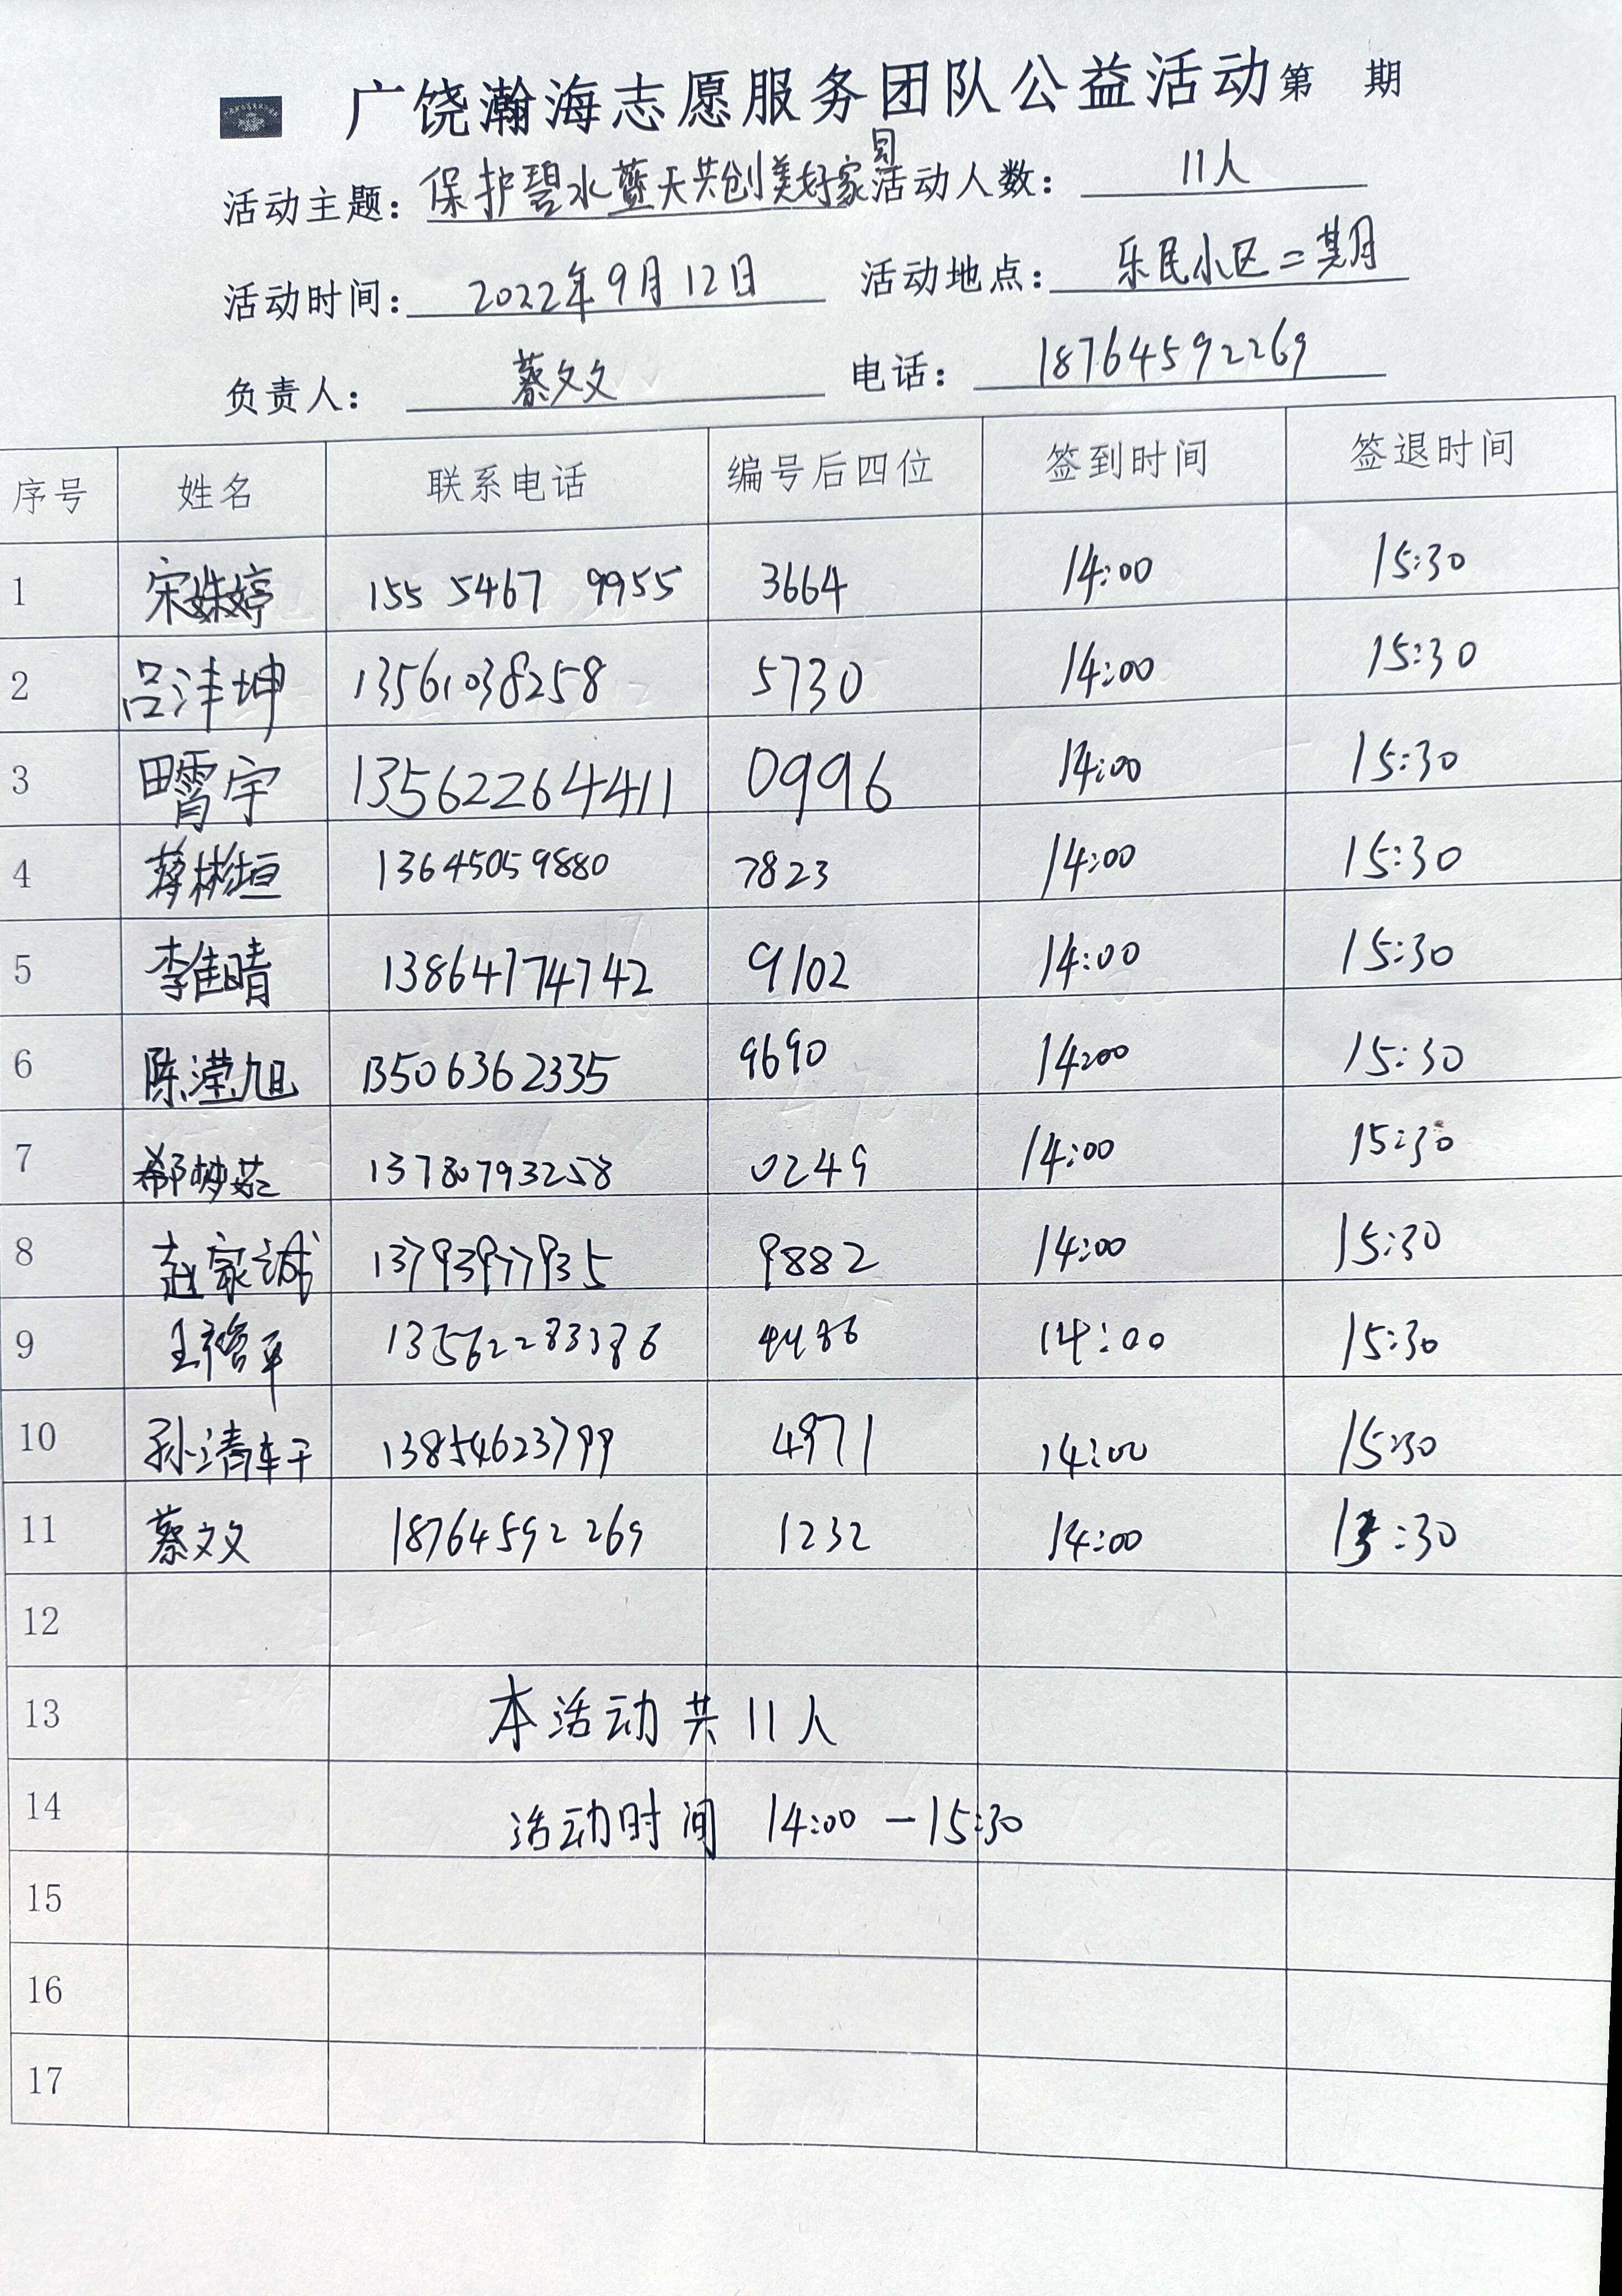 广饶瀚海志愿服务团队公益活动第 期
活动主题: 保护碧水蓝天共创美好家园 活动人数: 11人
活动时间: 2022年9月12日 活动地点: 乐民小区二期
负责人: 蔡文文 电话: 18764592269
序号 姓名 联系电话 编号后四位 签到时间 签退时间
1 宋姝婷 155 5467 9955 3664 14:00 15:30
2 吕沣坤 13561038258 5730 14:00 15:30
3 田霄宇 13562264411 0996 14:00 15:30
4 蔡彬垣 13645059880 7823 14:00 15:30
5 李隹晴 13864774742 9102 14:00 15:30
6 陈滢旭 13506362335 9690 14:00 15:30
7 郗梦茹 13780793258 0249 14:00 15:30
8 赵家诚 13793977935 9882 14:00 15:30
9 王 平 13562283386 4486 14:00 15:30
10 孙清轩 13854623799 4971 14:00 15:30
11 蔡文文 18764592269 1232 14:00 15:30
12
13 本活动共11人
14 活动时间 14:00 — 15:30
15
16
17